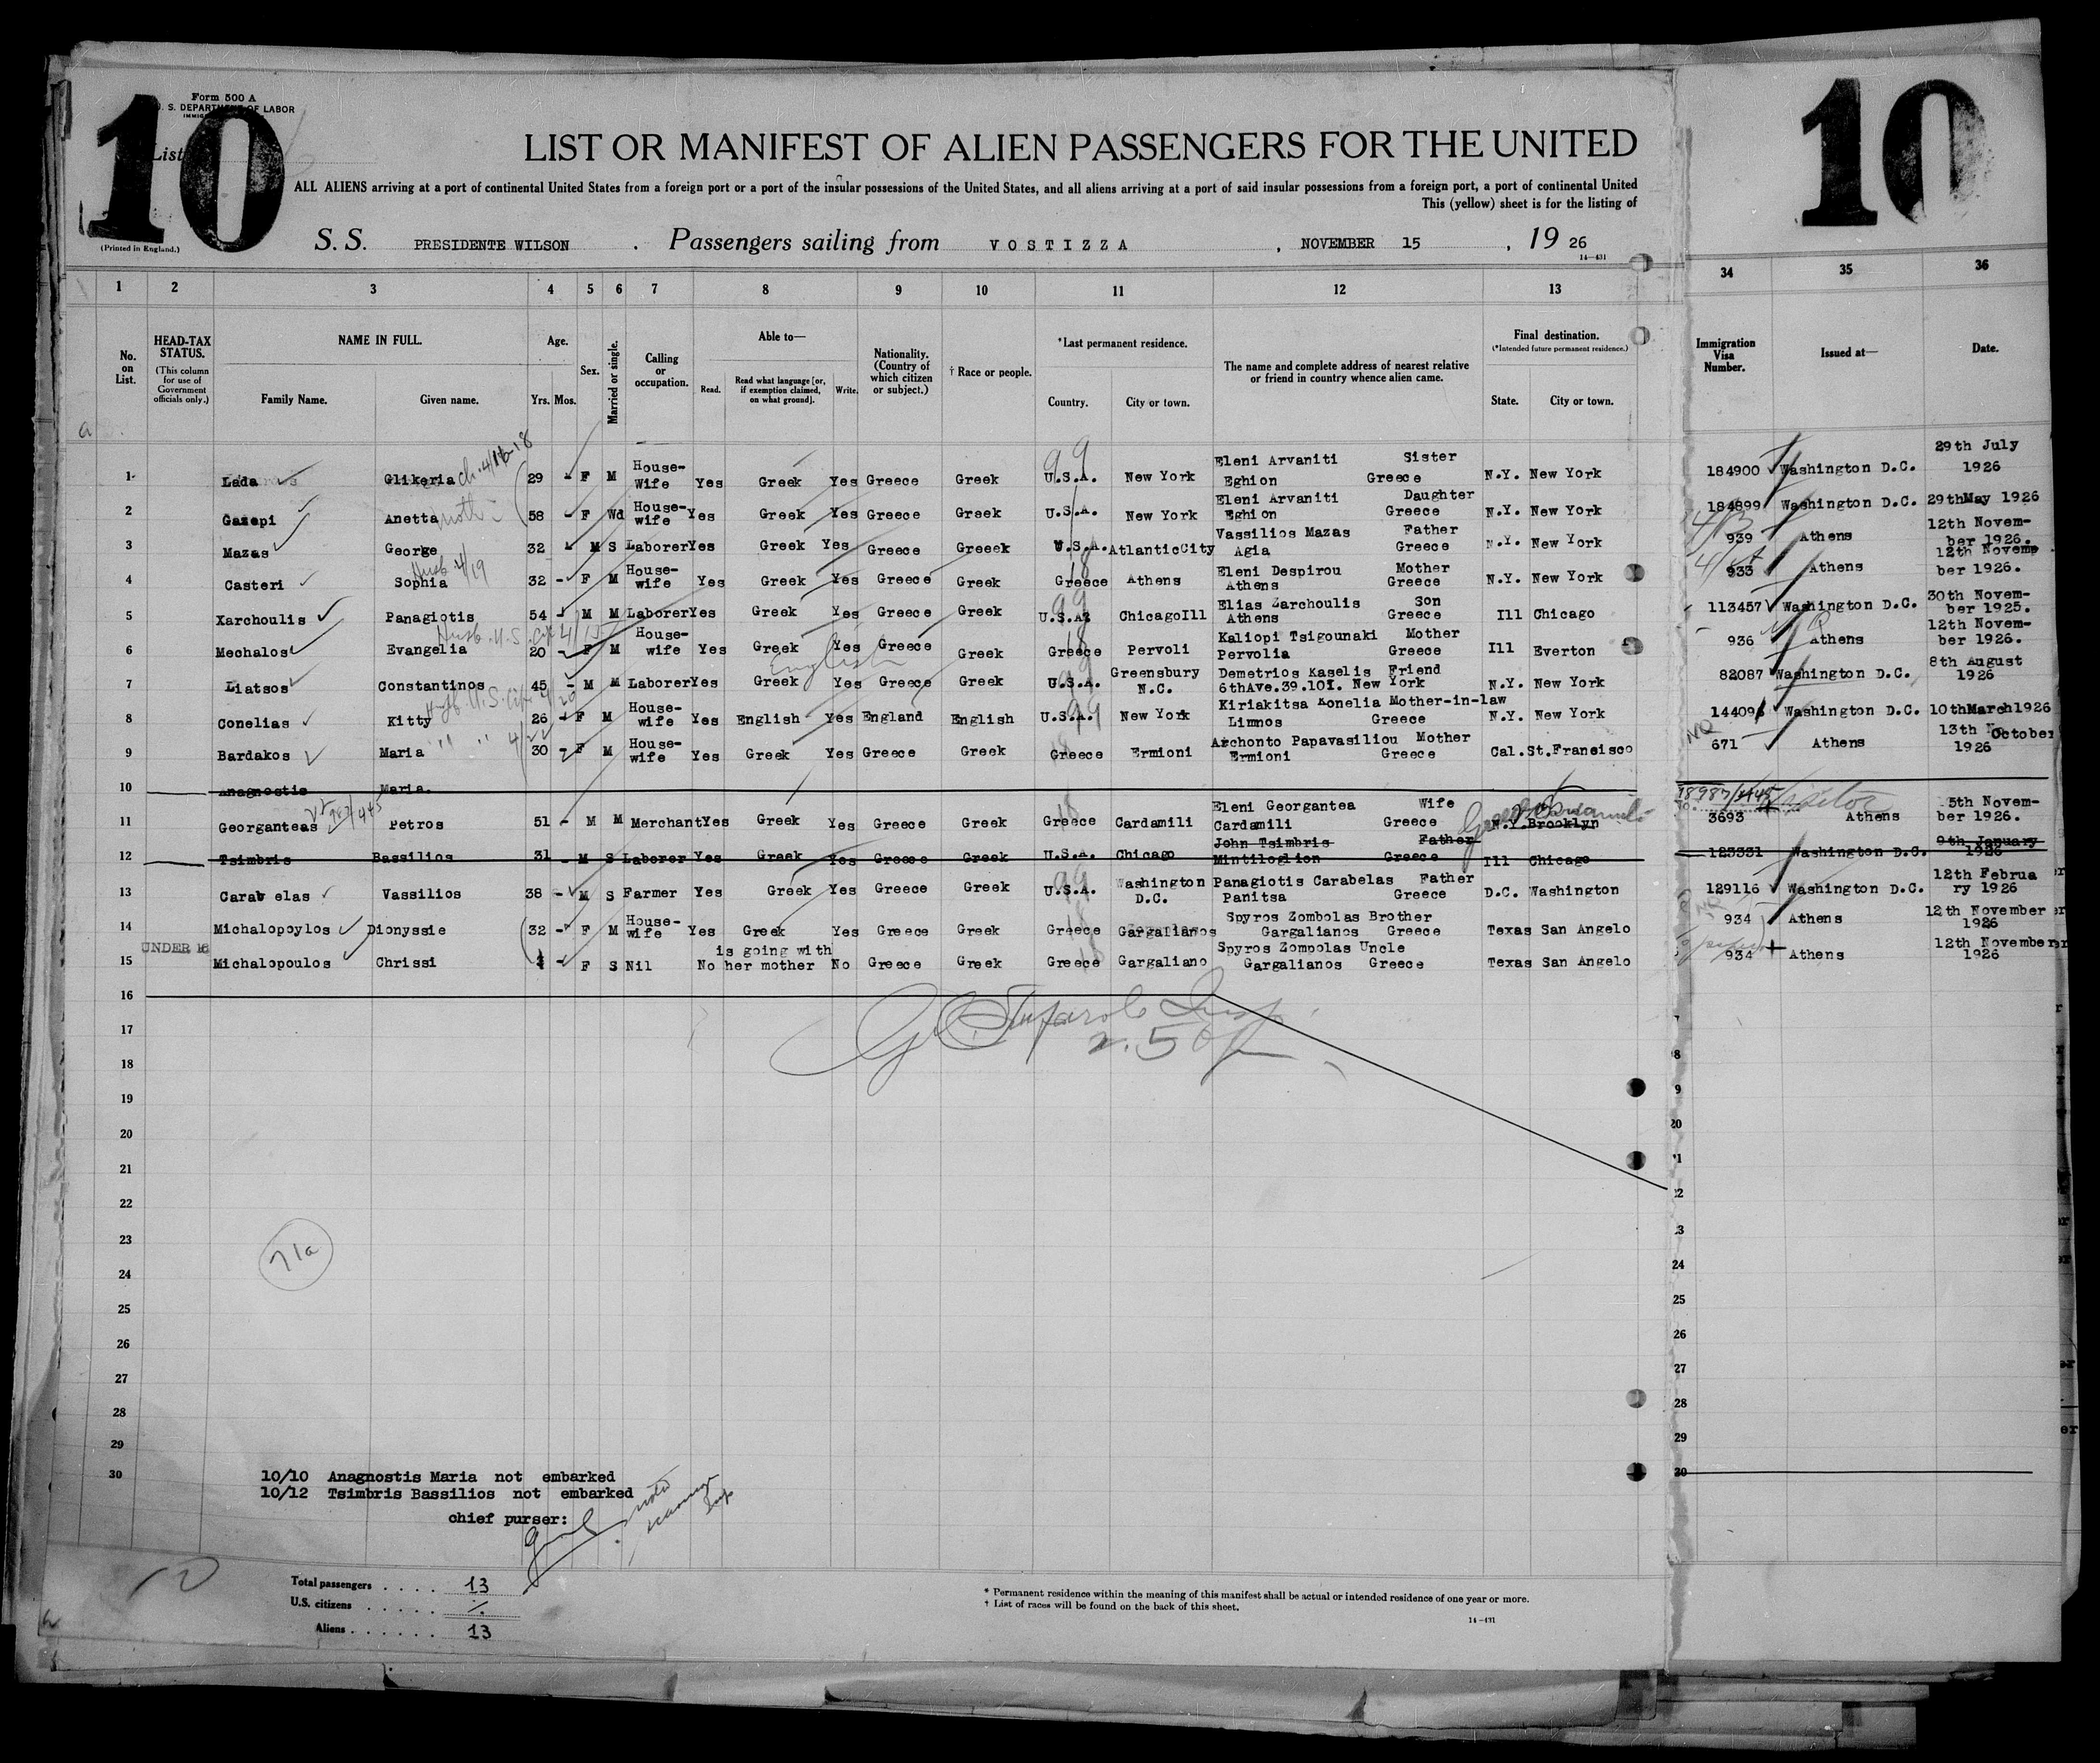 10
Form 500 A
U. S. DEPARTMENT OF LABOR
List
(Printed in England.)
LIST OR MANIFEST OF ALIEN PASSENGERS FOR THE UNITED
ALL ALIENS arriving at a port of continental United States from a foreign port or a port of the insular possessions of the United States, and all aliens arriving at a port of said insular possessions from a foreign port, a port of continental United
This (yellow) sheet is for the listing of
S. S. PRESIDENTE WILSON . Passengers sailing from VOSTIZZA , NOVEMBER 15 , 19 26
14-431
10
1 2 3 4 5 6 7 8 9 10 11 12 13 34 35 36
No. on List.
HEAD-TAX STATUS. (This column for use of Government officials only.)
NAME IN FULL. Family Name. Given name.
Age. Yrs. Mos.
Sex.
Married or single.
Calling or occupation.
Able to— Read. Read what language [or, if exemption claimed, on what ground]. Write.
Nationality. (Country of which citizen or subject.)
† Race or people.
*Last permanent residence. Country. City or town.
The name and complete address of nearest relative or friend in country whence alien came.
Final destination. (*Intended future permanent residence.) State. City or town.
Immigration Visa Number.
Issued at—
Date.
1 Lada Glikeria 29 - F M House-Wife Yes Greek Yes Greece Greek U.S.A. New York Eleni Arvaniti Sister Eghion Greece N.Y. New York 184900 Washington D.C. 29th July 1926
2 Gazepi Anetta 58 - F Wd House-wife Yes Greek Yes Greece Greek U.S.A. New York Eleni Arvaniti Daughter Eghion Greece N.Y. New York 184899 Washington D.C. 29thMay 1926
3 Mazas George 32 - M S Laborer Yes Greek Yes Greece Greeek U.S.A. AtlanticCity Vassilios Mazas Father Agia Greece N.Y. New York 939 Athens 12th Novem-ber 1926.
4 Casteri Sophia 32 - F M House-wife Yes Greek Yes Greece Greek Greece Athens Eleni Despirou Mother Athens Greece N.Y. New York 933 Athens 12th Novem ber 1926.
5 Xarchoulis Panagiotis 54 - M M Laborer Yes Greek Yes Greece Greek U.S.A. ChicagoIll Elias Zarchoulis Son Athens Greece Ill Chicago 113457 Washington D.C. 30th Novem-ber 1925.
6 Mechalos Evangelia 20 - F M House-wife Yes Greek Yes Greece Greek Greece Pervoli Kaliopi Tsigounaki Mother Pervolia Greece Ill Everton 936 Athens 12th Novem-ber 1926.
7 Liatsos Constantinos 45 - M M Laborer Yes Greek English Yes Greece Greek U.S.A. Greensbury N.C. Demetrios Kaselis Friend 6thAve.39.101. New York N.Y. New York 82087 Washington D.C. 8th August 1926
8 Conelias Kitty 26 - F M House-wife Yes English Yes England English U.S.A. New York Kiriakitsa Konelia Mother-in-law Limnos Greece N.Y. New York 144096 Washington D.C. 10thMarch1926
9 Bardakos Maria 30 - F M House-wife Yes Greek Yes Greece Greek Greece Ermioni Archonto Papavasiliou Mother Ermioni Greece Cal. St.Francisco 671 Athens 13th October 1926
10 Anagnostis Maria.
11 Georganteas Petros 51 - M M Merchant Yes Greek Yes Greece Greek Greece Cardamili Eleni Georgantea Wife Cardamili Greece N.Y. Brooklyn 3693 Visitor Athens 5th Novem-ber 1926.
12 Tsimbris Bassilios 31 - M S Laborer Yes Greek Yes Greece Greek U.S.A. Chicago John Tsimbris Father Mintiloglion Greece Ill Chicago 123331 Washington D.C. 9th January 1926
13 Carab elas Vassilios 38 - M S Farmer Yes Greek Yes Greece Greek U.S.A. Washington D.C. Panagiotis Carabelas Father Panitsa Greece D.C. Washington 129116 Washington D.C. 12th Februa ry 1926
14 Michalopoylos Dionyssie 32 - F M House-wife Yes Greek Yes Greece Greek Greece Gargalianos Spyros Zombolas Brother Gargalianos Greece Texas San Angelo 934 Athens 12th November 1926
UNDER 16
15 Michalopoulos Chrissi F S Nil No is going with her mother No Greece Greek Greece Gargaliano Spyros Zompolas Uncle Gargalianos Greece Texas San Angelo 934 Athens 12th November 1926
16
17
18
19
20
21
22
23
24
25
26
27
28
29
30
71a
10/10 Anagnostis Maria not embarked
10/12 Tsimbris Bassilios not embarked
chief purser:
Total passengers . . . . 13
U.S. citizens . . . . . . /.
Aliens . . . . . . 13
* Permanent residence within the meaning of this manifest shall be actual or intended residence of one year or more.
† List of races will be found on the back of this sheet.
14-431